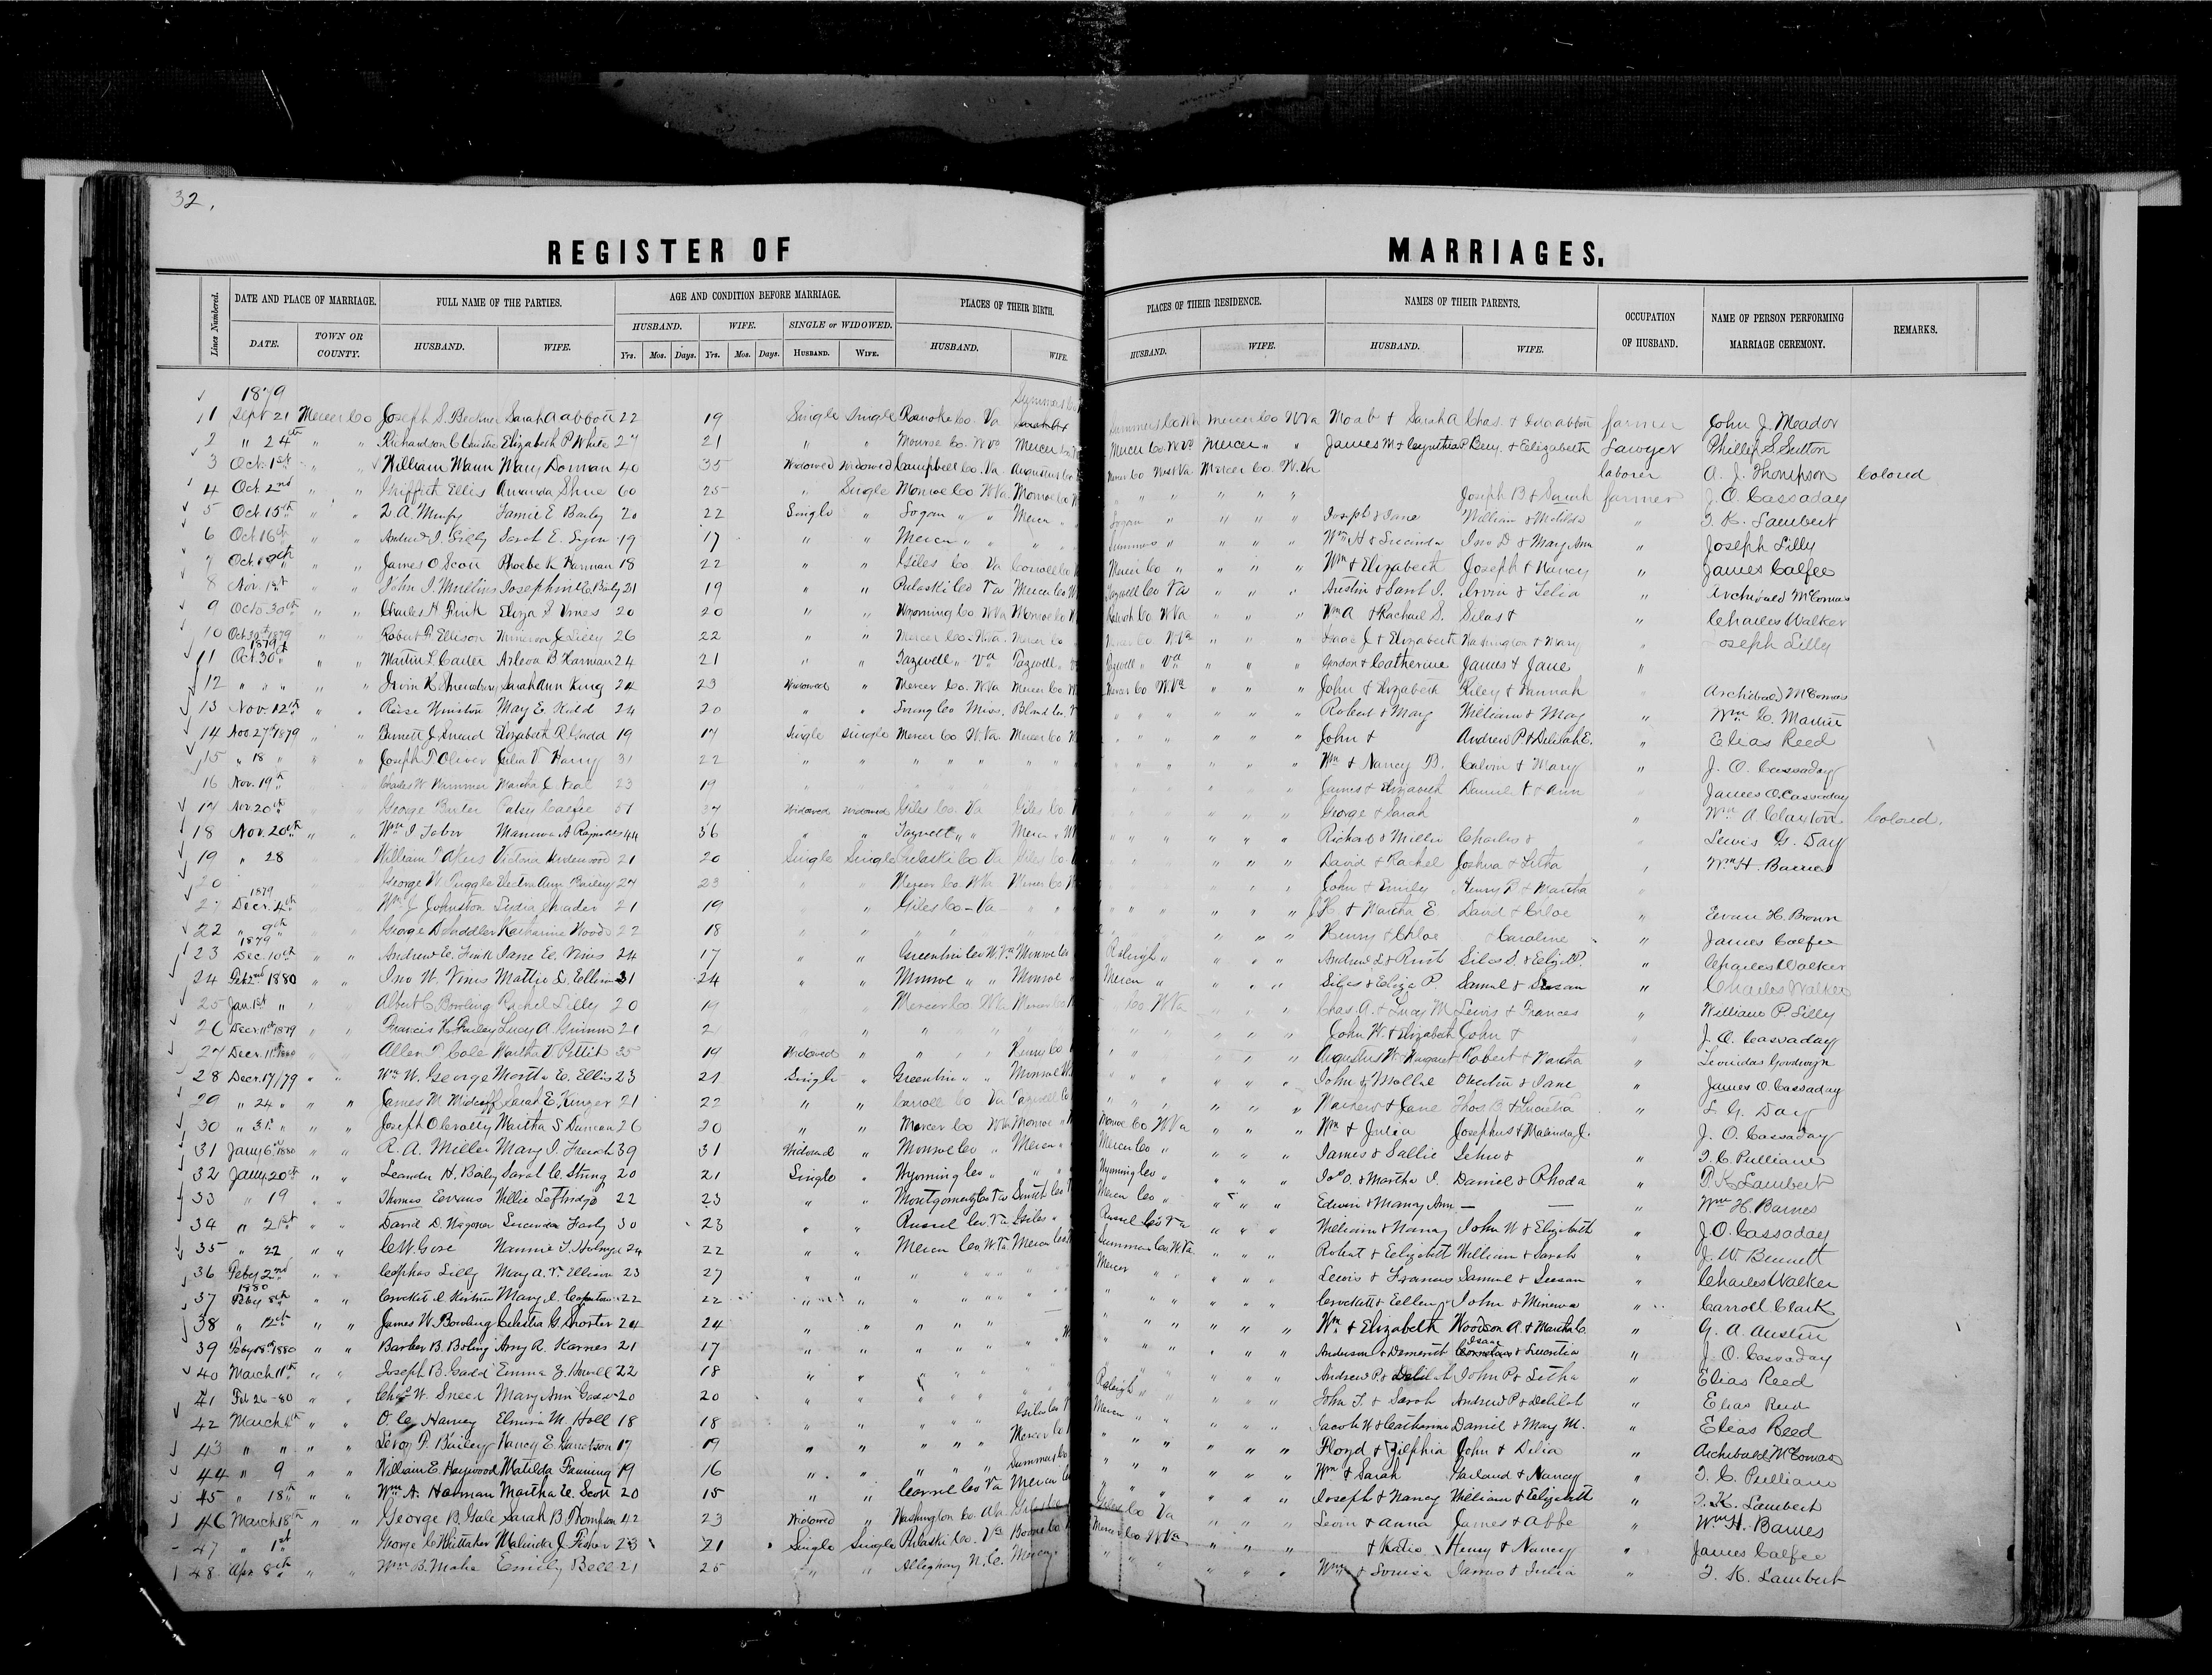 32.
REGISTER OF MARRIAGES.
Lines Numbered. DATE AND PLACE OF MARRIAGE. FULL NAME OF THE PARTIES. AGE AND CONDITION BEFORE MARRIAGE. PLACES OF THEIR BIRTH. PLACES OF THEIR RESIDENCE. NAMES OF THEIR PARENTS. OCCUPATION OF HUSBAND. NAME OF PERSON PERFORMING MARRIAGE CEREMONY. REMARKS.
HUSBAND. WIFE. SINGLE or WIDOWED.
DATE. TOWN OR COUNTY. HUSBAND. WIFE. Yrs. Mos. Days. Yrs. Mos. Days. HUSBAND. WIFE. HUSBAND. WIFE. HUSBAND. WIFE. HUSBAND. WIFE.
1879
1 Sept 21 Mercer Co Joseph S. Sarah A Abbott 22 19 Single Single Roanoke Co. Va Mercer Co W Va Moab & Sarah A Chas. & abbott farmer John J. Meador
2 " 24th " " Richardson Elizabeth P White 27 21 " " Monroe Co. W Va Mercer Co Mercer Co. W Va Mercer " " James M & Cynthia P Benj. & Elizabeth Lawyer Phillip S. Sutton
3 Oct. 1st " " William Mann Mary Dorman 40 35 Widowed Widowed Campbell Co. Va Augusta Co Mercer Co West Va Mercer Co. W. Va laborer A. J. Thompson Colored
4 Oct 2nd " " Griffith Ellis Amanda 60 25 " Single Monroe Co W Va Monroe Co " " " " " " Joseph B & Sarah farmer J. O. Cassaday
5 Oct 15th " " 20 22 Single " Logan " " Mercer " Logan " " " " Joseph & Jane William & Matilda " T. K. Lambert
6 Oct 16th " " Andrew J. Lilly Sarah E. 19 17 " " Mercer " " " Summers " " " " Wm H & Lucinda Jno D & Mary Ann " Joseph Lilly
7 Oct. " " James O Scott Phoebe K Harman 18 22 " " Giles Co Va Carroll Co Mercer Co " " " " Wm & Elizabeth Joseph & Nancy " James Calfee
8 Nov. 1st " " John J. Mullins Josephine Baily 21 19 " " Pulaski Co Va Mercer Co Tazwell Co Va " " " Austin & Irvin & Delia " Archibald McComas
9 Octo 30th " " Charles H. Fink Eliza S Vines 20 20 " " Wyoming Co W Va Monroe Co Raleigh Co W Va " " " Wm A & Rachael S. Silas & " Charles Walker
10 Oct. 30th 1879 " " Robert Ellison Minerva J Lilly 26 22 " " Mercer Co. W. Va. Mercer Co Mercer Co W Va " " " Isaac J. & Elizabeth Washington & Mary " Joseph Lilly
11 1879 Oct. 30th " " Martin L. Carter Arleva B Harman 24 21 " " Tazwell " Va Tazwell " Tazwell " Va " " " Gordon & Catherine James & Jane "
12 " " " " " Irvin K Sarah Ann King 24 23 Widowed " Mercer Co. W Va Mercer Co Mercer Co W. Va " " " John & Elizabeth Riley & Hannah " Archibald McComas
13 Nov. 12th " " Reese Winston May E. Kidd 24 20 " " Co Miss. Bland Co. " " " " " " Robert & Mary William & May " Wm E. Martin
14 Nov 27th 1879 " " Burnett J. Snead Elizabeth R. Gadd 19 17 Single single Mercer Co W. Va. Mercer Co " " " " " " John & Andrew P. & Delilah E. " Elias Reed
15 " 18 " " " Joseph T. Oliver Julia V Karry 31 22 " " " " " " " " " " " " " " Wm & Nancy B. Calvin & Mary " J. O. Cassaday
16 Nov. 19th Charles W Wimmer Martha C Neal 23 19 James & Elizabeth Daniel & Ann James O. Cassaday
17 Nov 20th George Patsy Calfee 57 37 Widowed widowed Giles Co. Va Giles Co George & Sarah " Wm A Claytor Colored.
18 Nov. 20th " " Wm J Tabor Manerva A Reynolds 44 36 " " Tazwell " " Mercer " " " " " " " Richard & Millie Charles & " Lewis G. Day
19 " 28 William Akers Victoria Underwood 21 20 Single Single Pulaski Co Va Giles Co " " " David & Rachel Joshua & Litha " Wm H. Barnes
20 George W. Puggle Electra Ann Bailey 24 23 Mercer Co. W Va Mercer Co " " " John & Emily Henry B & Martha "
21 1879 Decr. 4th Wm J Johnston Lydia Shrader 21 19 " Giles Co - Va " " " " " " " " J. H. & Martha E. David & Chloe " Evan H. Brown
22 " 9th " George D Saddler Katharine Woods 22 18 " " " " " " Henry & Chloe & Caroline " James Calfee
23 1879 Dec. 10th " " Andrew E. Fink Jane E. Vines 24 17 " " Greenbrier Co W. Va Monroe Co Raleigh " " " " Andrew L & Ruth Silas S. & Eliz. P. " Charles Walker
24 1880 " " Jno W. Vines Mattie S. Ellison 31 24 " " Monroe " " Monroe " Mercer " " " " Silas & Eliza P. Samuel & Susan " Charles Walker
25 Jany 1st " " " Albert C. Bowling Rachel Lilly 20 19 Mercer Co. W Va Mercer Co Co. W Va Chas. A. & Lucy M Lewis & Frances " William P. Lilly
26 Decr. 11th 1879 " " Francis H. Bailey Lucy A. 21 " " " " " " " " " John W. & Elizabeth John & " J. O. Cassaday
27 Decr. 11th " " Allen T. Cole Martha V Pettit 35 19 Widowed " " " " Henry Co " " " " " Augustus W. & Margaret Robert & Martha " Leonidas Goodwyn
28 Decr. 17/79 " " Wm W. George Martha E. Ellis 23 21 Single " Greenbrier " " Monroe " " " " " " John & Mollie & Jane " James O. Cassaday
29 " 24 " " " James M Midcaff Sarah E. Kinzer 21 22 " " Carroll Co Va Tazwell Co " " " " " " Mathew & Jane Thos B & Lucretia " L. G. Day
30 " 31st " " " Joseph O Martha S Duncan 26 20 " " Mercer Co W Va Monroe " Monroe Co. W Va " " " Wm & Julia Josephus & Malinda J. " J. O. Cassaday
31 Jany 6th 1880 " " R. A. Miller Mary J. French 39 31 Widowed " Monroe Co " Mercer " Mercer Co " " " " James & Sallie & " T. C. Pulliam
32 Jany 20th " " Leander H. Baily Sarah C. String 20 21 Single " Wyoming Co " " " Wyoming Co " " " " Jas O. & Martha J. Daniel & Rhoda " T. K. Lambert
33 " 19 " " Thomas Evans Millie Leftridge 22 23 " " Montgomery Co Va Smith Co Mercer Co " " " " Edwin & Mary Ann — — " Wm H. Barnes
34 " 21st " " David D. Wagoner Lucinda Farly 30 23 " " Russel Co. Va Giles " Russel Co Va " " " William & Nancy John W & Elizabeth " J. O. Cassaday
35 " 22 " " C. W. Gore Nannie T. Holroyd 24 22 " " Mercer Co. W Va Mercer Co Summers Co. W Va " " " Robert & Elizabeth William & Sarah " J. W. Bennett
36 Feby 2nd " " Cephas Lilly Mary A. V. Ellison 23 27 " " " " " " " Mercer " " " " " Lewis & Frances Samuel & Susan " Charles Walker
37 1880 Feby 8th " " Crocket C Mary I. 22 22 " " " " " " " " " " " " Crockett & Ellen John & Minerva " Carroll Clark
38 " 12th " " James W. Bowling Celestia G Shorter 24 24 " " " " " " " " " " Wm & Elizabeth Woodson A. & Martha C. " G. A. Austin
39 Feby 18th 1880 " " Barker B. Boling Amy R. Karnes 21 17 " " " " " " " " " " Anderson & Isaac & Lucretia " J. O. Cassaday
40 March 11th " " Joseph B. Gadd Emma Z. Howell 22 18 " " " " " " " " " Andrew P. & Delilah John P. & Litha " Elias Reed
41 Feb 26-80 " " Chas W. Sneed Mary Ann Gadd 20 20 " " " " " " " Raleigh " " " " " John T. & Sarah Andrew P & Delilah " Elias Reed
42 March 4th " " O. C. Harvey Elmira M. Holl 18 18 " " " " " Giles Co Mercer " " " " " Jacob W & Catharine Daniel & Mary M. " Elias Reed
43 " " " " Levoy P. Bailey Nancy E. Garretson 17 19 " " " " " Mercer Co " " " " " Floyd & Zilphia John & Delia " Archibald McComas
44 " 9 " " William E. Haywood Matilda Fanning 19 16 " " " " " Summers Co " " " " " Wm & Sarah Garland & Nancy " T. C. Pulliam
45 " 18th " " Wm A. Harman Martha E. Scott 20 15 " " Carrol Co Va Mercer Co " " " " " Joseph & Nancy William & Elizabeth " T. K. Lambert
46 March 18th " " George B. Gale Sarah B. Thompson 42 23 Widowed " Washington Co. Giles Giles Co Va " " " Levin & Anna James & Abbe " Wm H. Barnes
47 " 1st " " George L Whittaker Malinda J Fisher 23 21 Single Single Pulaski Co. Va Boone Co Mercer Co W Va " " " & Katie Henry & Nancy " James Calfee
48 Apr. 8th " " Wm B. Maha Emily Bell 21 25 " " Alleghany N. C. Mercer " " " " " " Wm & Louisa James & Julia " T. K. Lambert